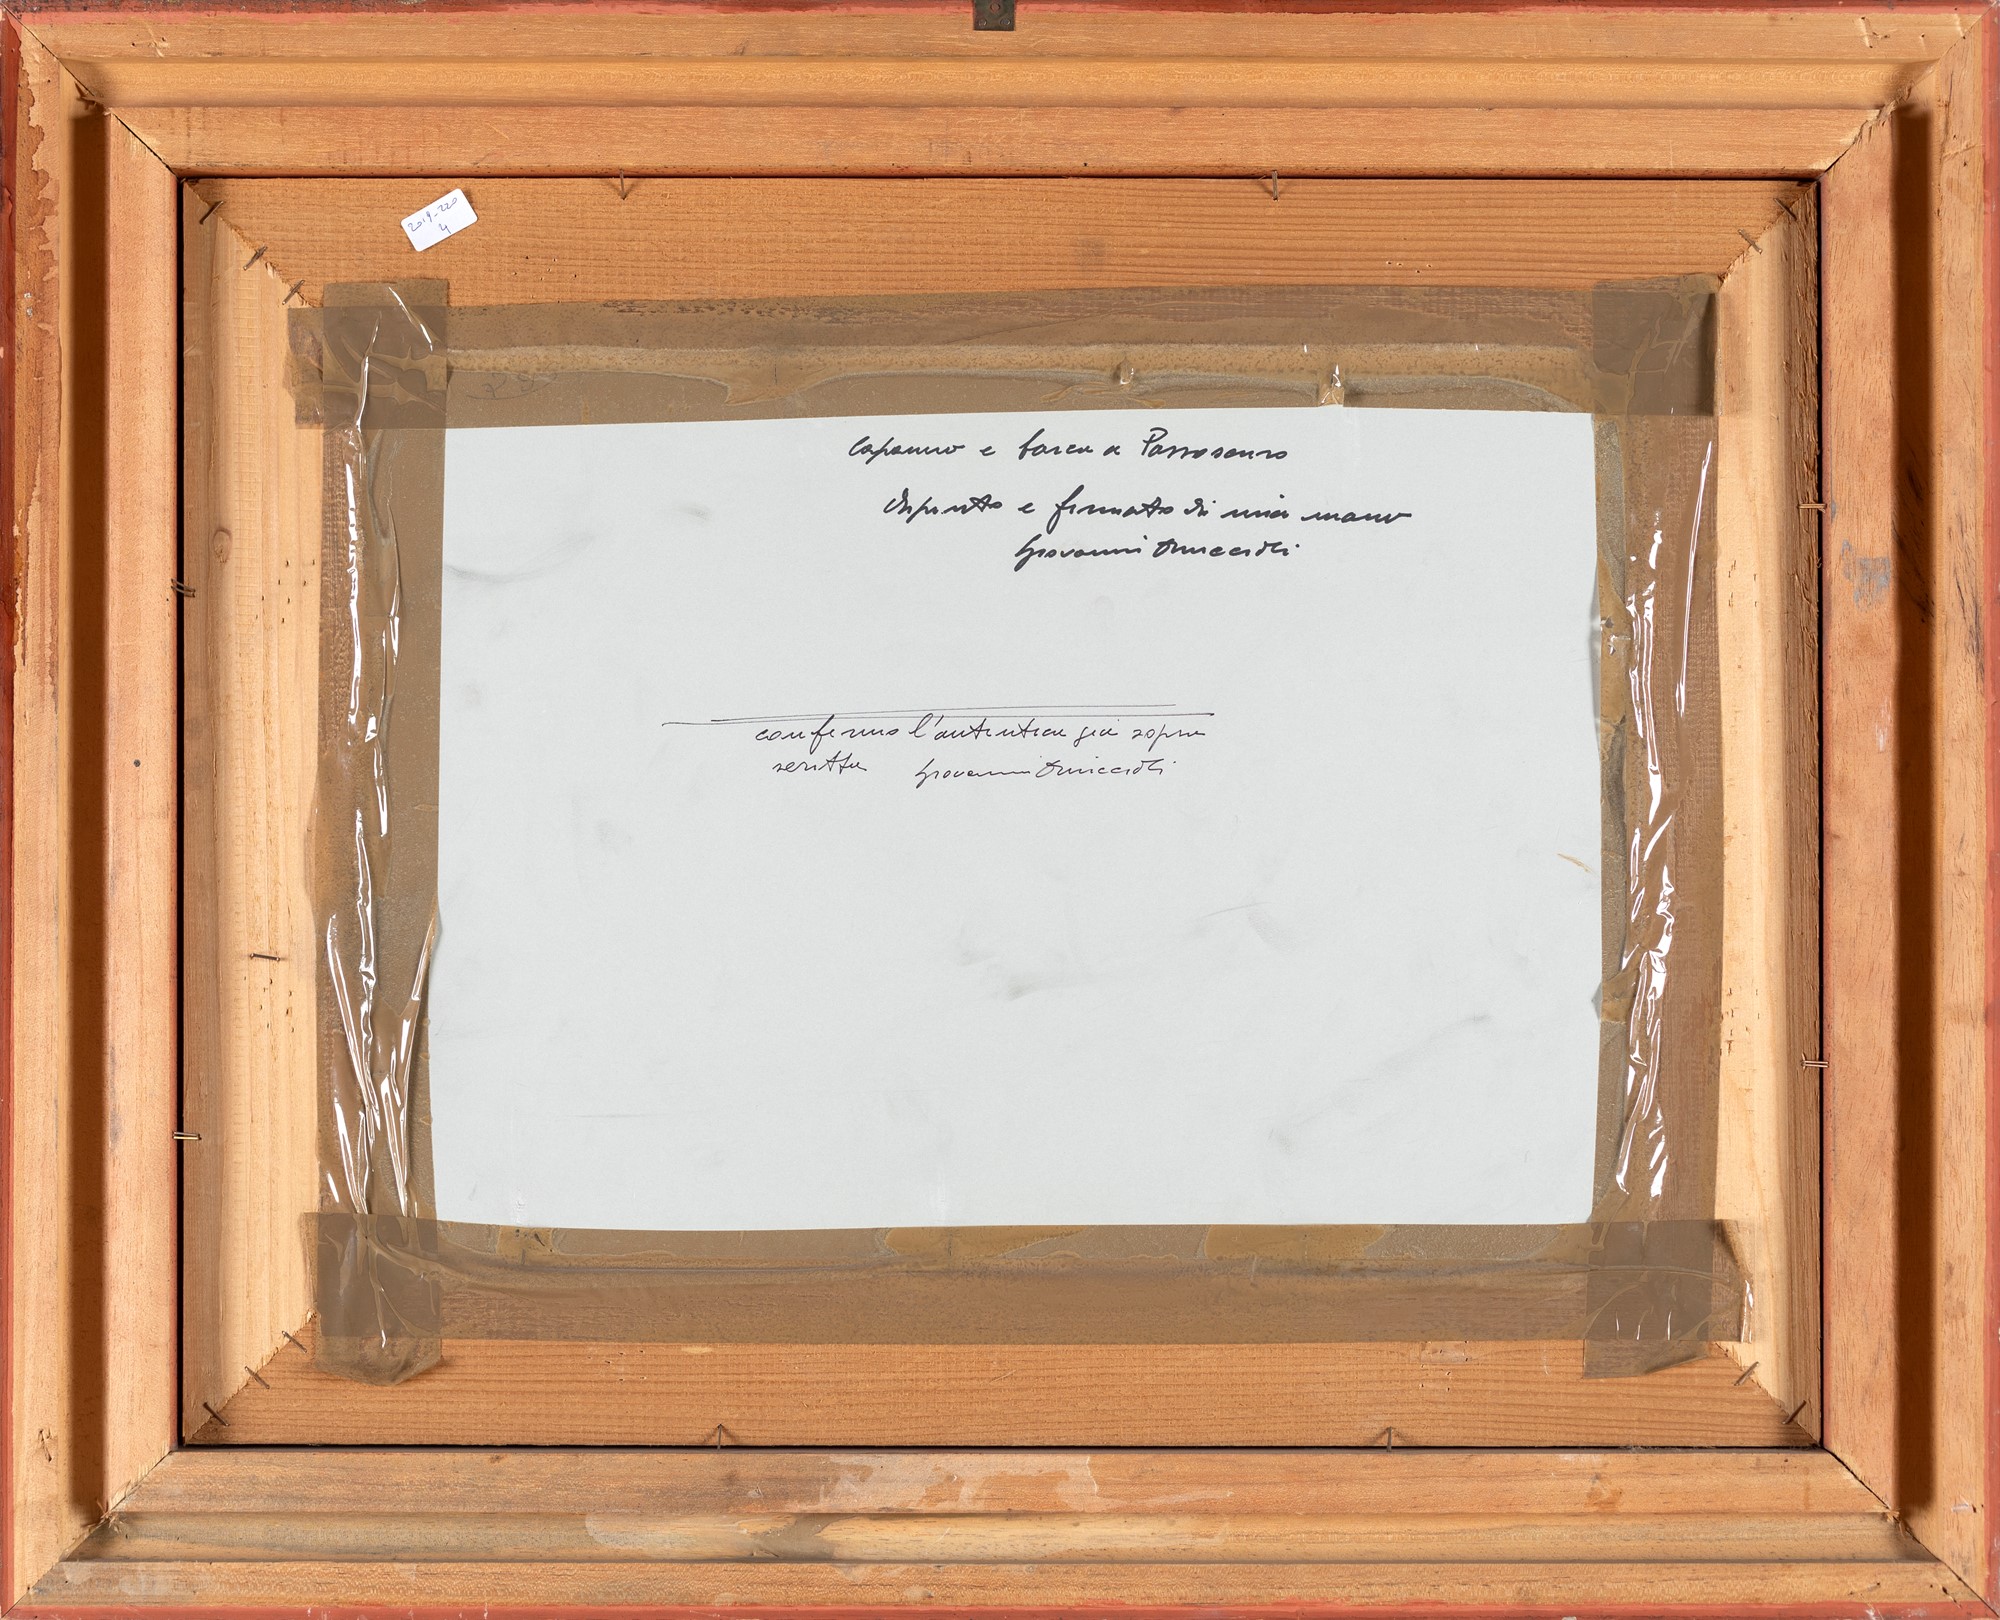 2019-220
4
Capanno e barca a Portosauro
dipinto e firmato di mia mano
Giovanni Omiccioli
confermo l'autentica già sopra
scritta Giovanni Omiccioli